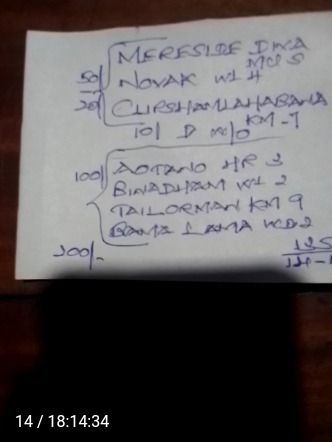 MERESIDE DNA
MCS
50/ NOVAK W1 4
20/ CLIPSHAMLAHABANA
KM-7
10/ D W/O
100/ AOTANO HR 3
BINADHAM W1 2
TAILORMAN KM 9
GAMA LAMA WD2
200/-
125
14 / 18:14:34